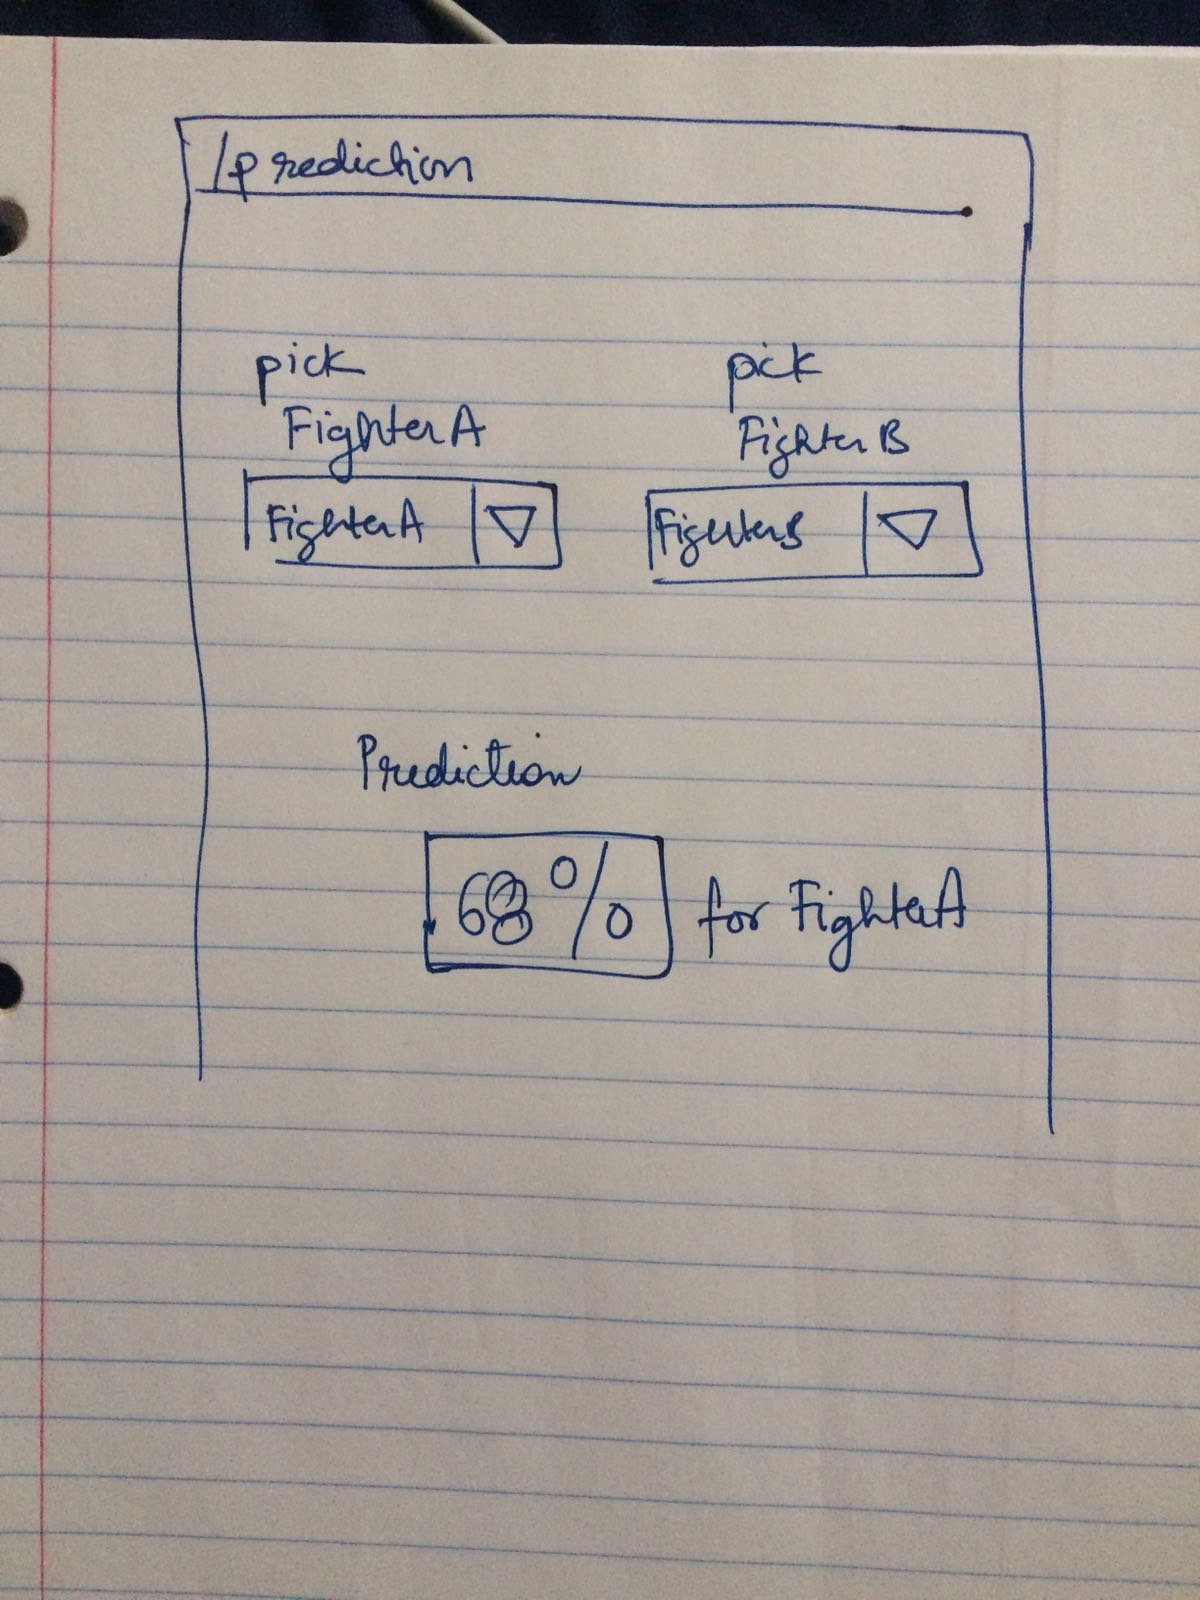 /prediction
pick
Fighter A
pick
Fighter B
Fighter A
Fighter B
Prediction
68% for Fighter A